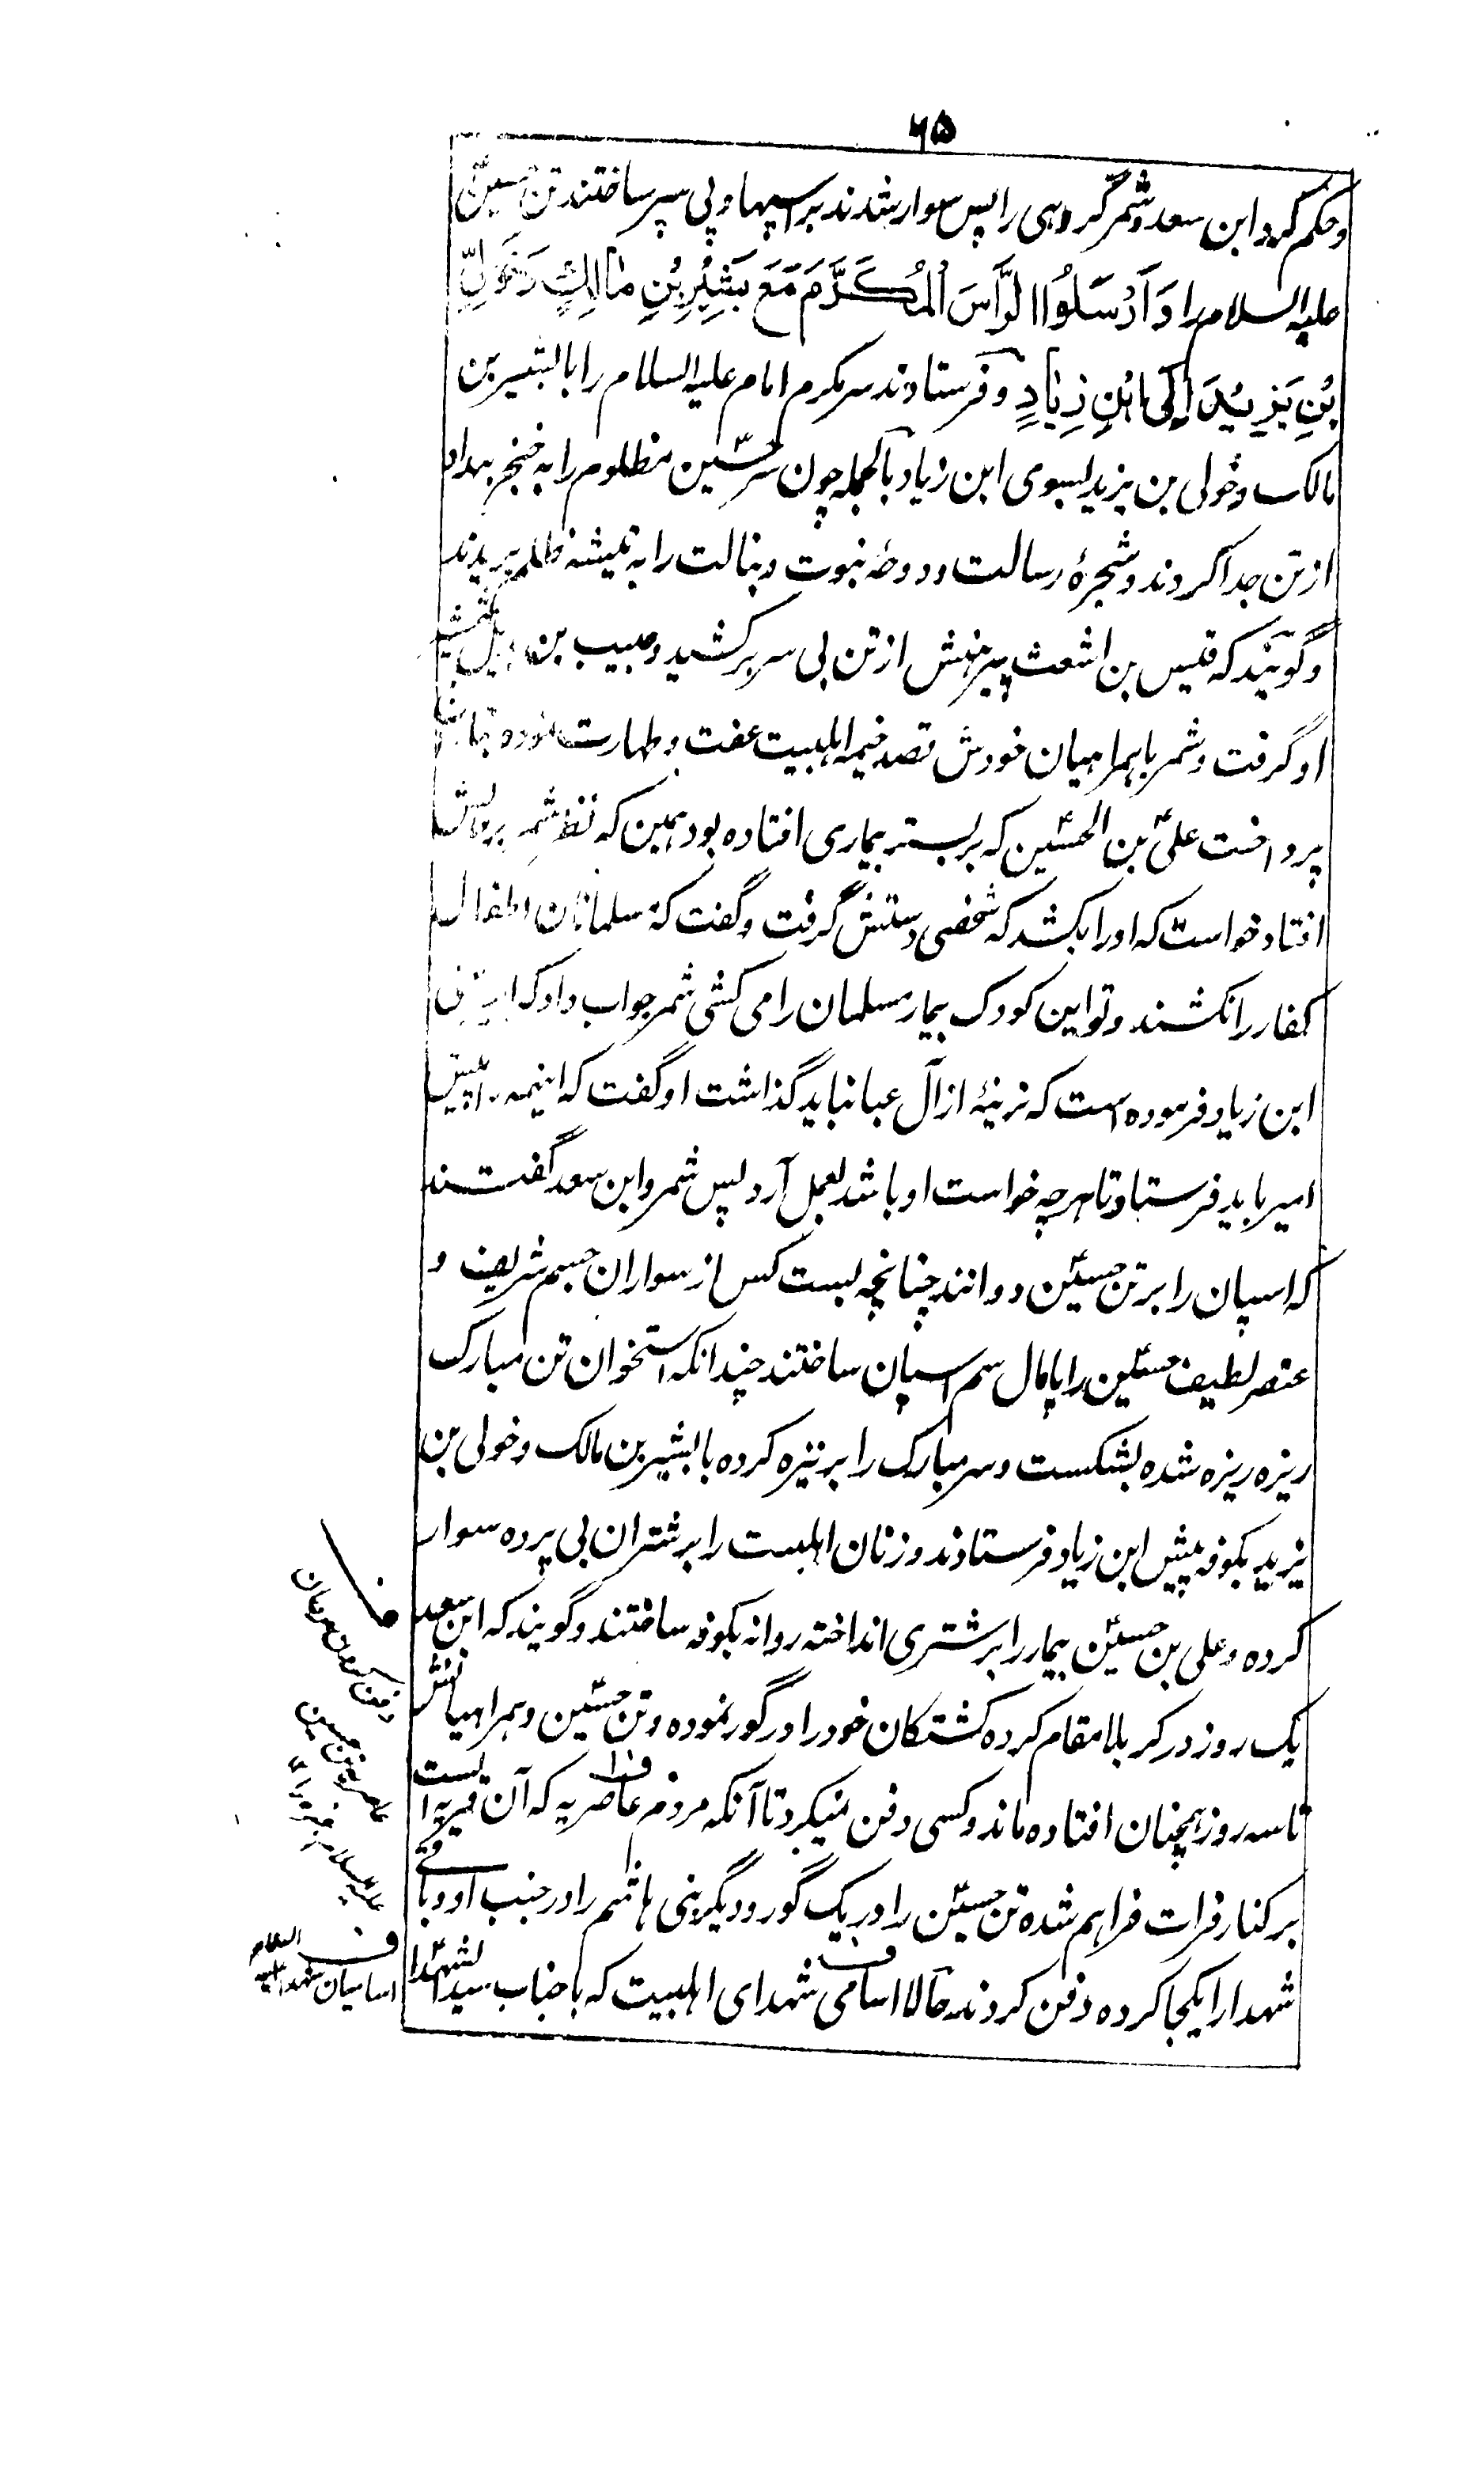 ۶۵
و حکم کرد ابن سعد و شمر گروهی را پس سوار شدند بر اسپها و پی سپر ساختند تن حسین
علیه السلام را وَ اَرْسَلُوا الرَّاسَ الْمُکَرَّمَ مَعَ بَشِیْرِ بْنِ مَالِکٍ وَ خَوْلِیِّ
بْنِ یَزِیْدَ اِلَی ابْنِ زِیَادٍ و فرستادند سر مکرم امام علیه السلام را با بشیر بن
مالک و خولی بن یزید بسوی ابن زیاد بالجمله چون سر حسین مظلوم را به خنجر بیداد
از تن جدا کردند و شجرهٔ رسالت و دوحهٔ نبوت و بنالت را به تیشه ظلم بریدند
و گویند که قیس بن اشعث پیرهنش از تن بی سر برکشید و حبیب بن بدیل شمشیر
او گرفت و شمر با همراهیان خودش قصد خیمه اهلبیت عفت و طهارت نموده
پرداخت علی بن الحسین که بر بستر بیماری افتاده بود همین که نظر شمر بروی
افتاد خواست که او را بکشد که شخصی دستش گرفت و گفت که مسلمانان اطفال
کفار را نکشند و تو این کودک بیمار مسلمان را می کشی شمر جواب داد که
ابن زیاد فرموده است که نرینهٔ از آل عبا نباید گذاشت او گفت که اینهمه را پیش
امیر باید فرستاد تا هرچه خواست او باشد بعمل آرد پس شمر و ابن سعد گفتند
که اسپان را بر تن حسین دوانند چنانچه بست کس از سواران جسم شریف و
عنصر لطیف حسین را پایمال سم اسپان ساختند چندانکه استخوان تن مبارک
ریزه ریزه شده بشکست و سر مبارک را بر نیزه کرده با بشیر بن مالک و خولی بن
یزید بکوفه پیش ابن زیاد فرستادند و زنان اهلبیت را بر شتران بی پرده سوار
کرده و علی بن حسین بیمار را بر شتری انداخته روانه بکوفه ساختند و گویند که ابن سعد
یک روز در کربلا مقام کرده کشتگان خود را در گور نموده و تن حسین و همراهیانش
تا سه روز همچنان افتاده ماند و کسی دفن نمیکرد تا آنکه مردم عاضریه که آن قریه ایست
بر کنار فرات فراهم شده تن حسین را در یک گور و دیگر بنی هاشم را در جنب او و باقی
شهدا را یکجا کرده دفن کردند حالا اسامی شهدای اهلبیت که با جناب سید الشهدا
دفن کردن مردمان
عاضریه تن حسین
علیه السلام
ف
اسامیان شهدا علیه السلام